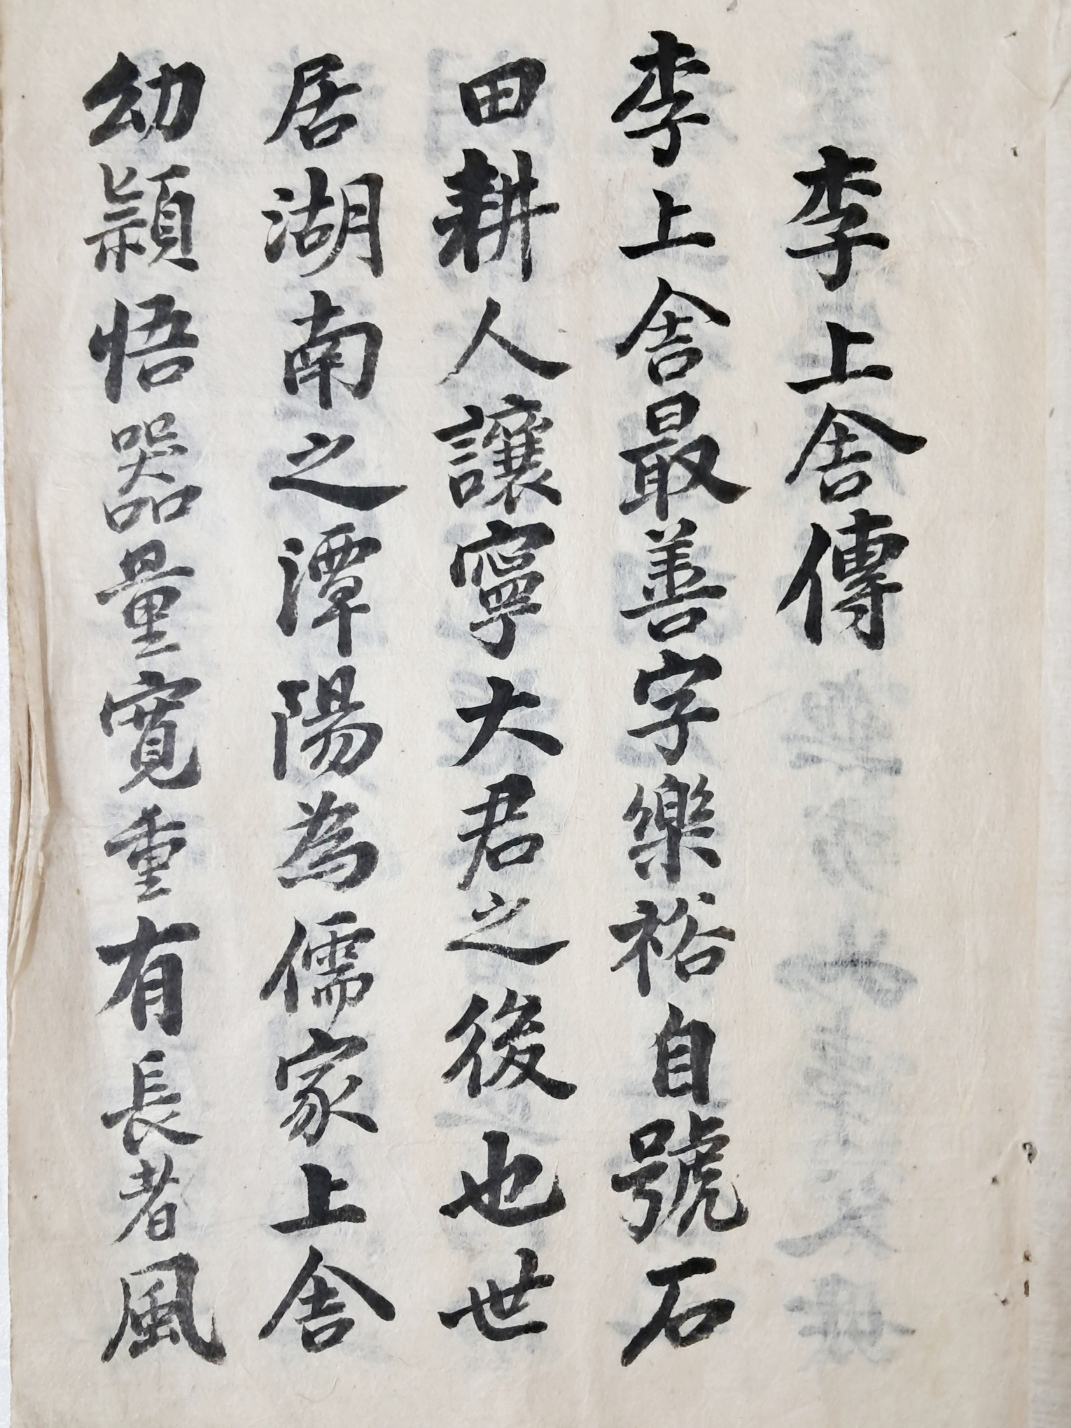 李上舍傳
李上舍最善字樂裕自號石
田耕人讓寧大君之後也世
居湖南之潭陽為儒家上舍
幼穎悟器量寬重有長者風